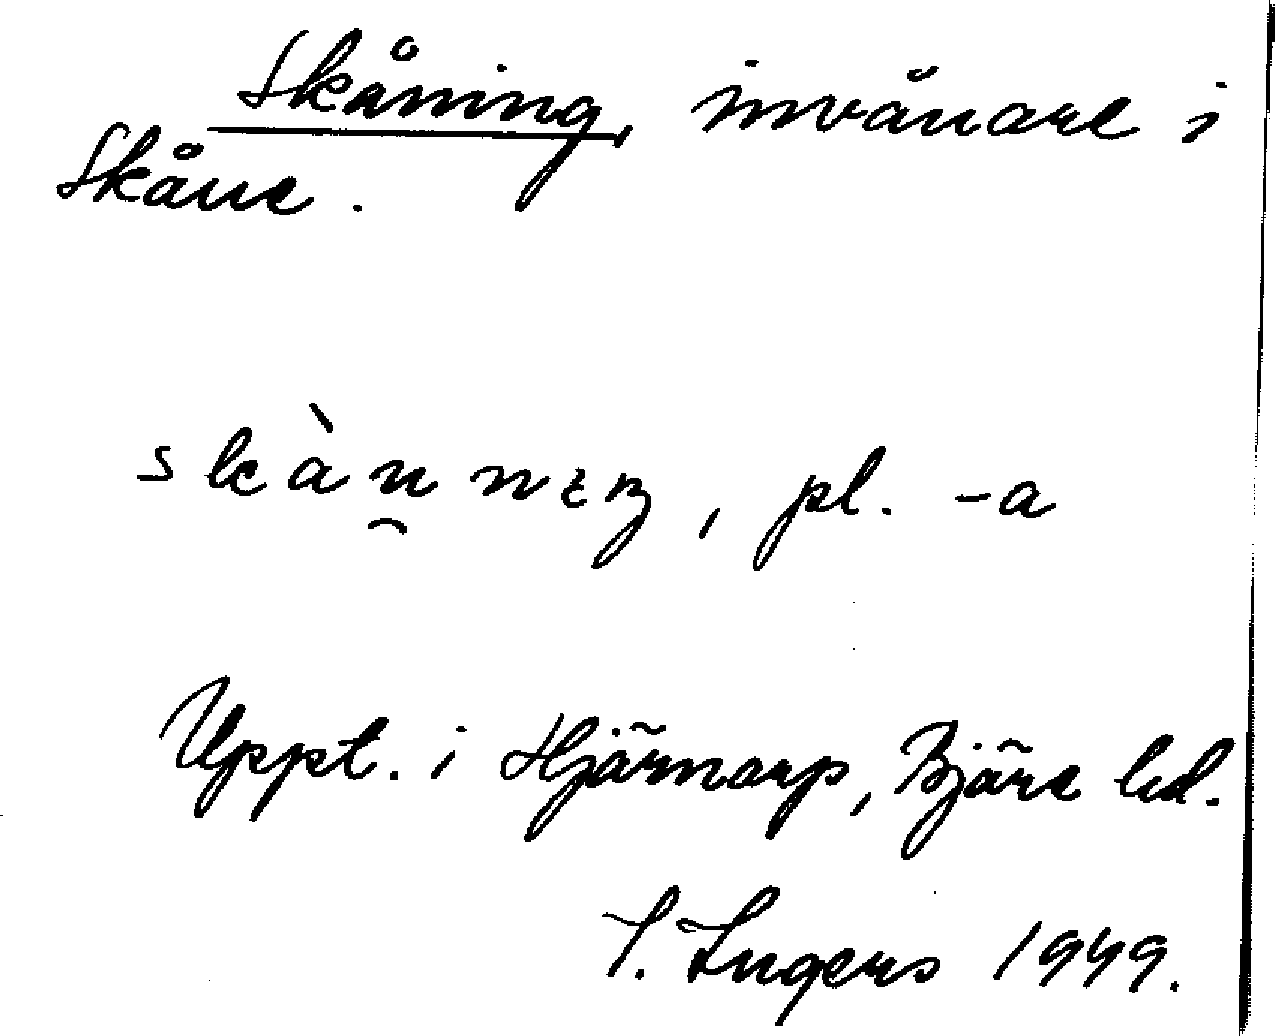 Skåning, invånare i
Skåne.
skàu̯nɩŋ, pl. -a
Uppt. i Hjärnarp, Bjäre hd.
I. Ingers 1949.